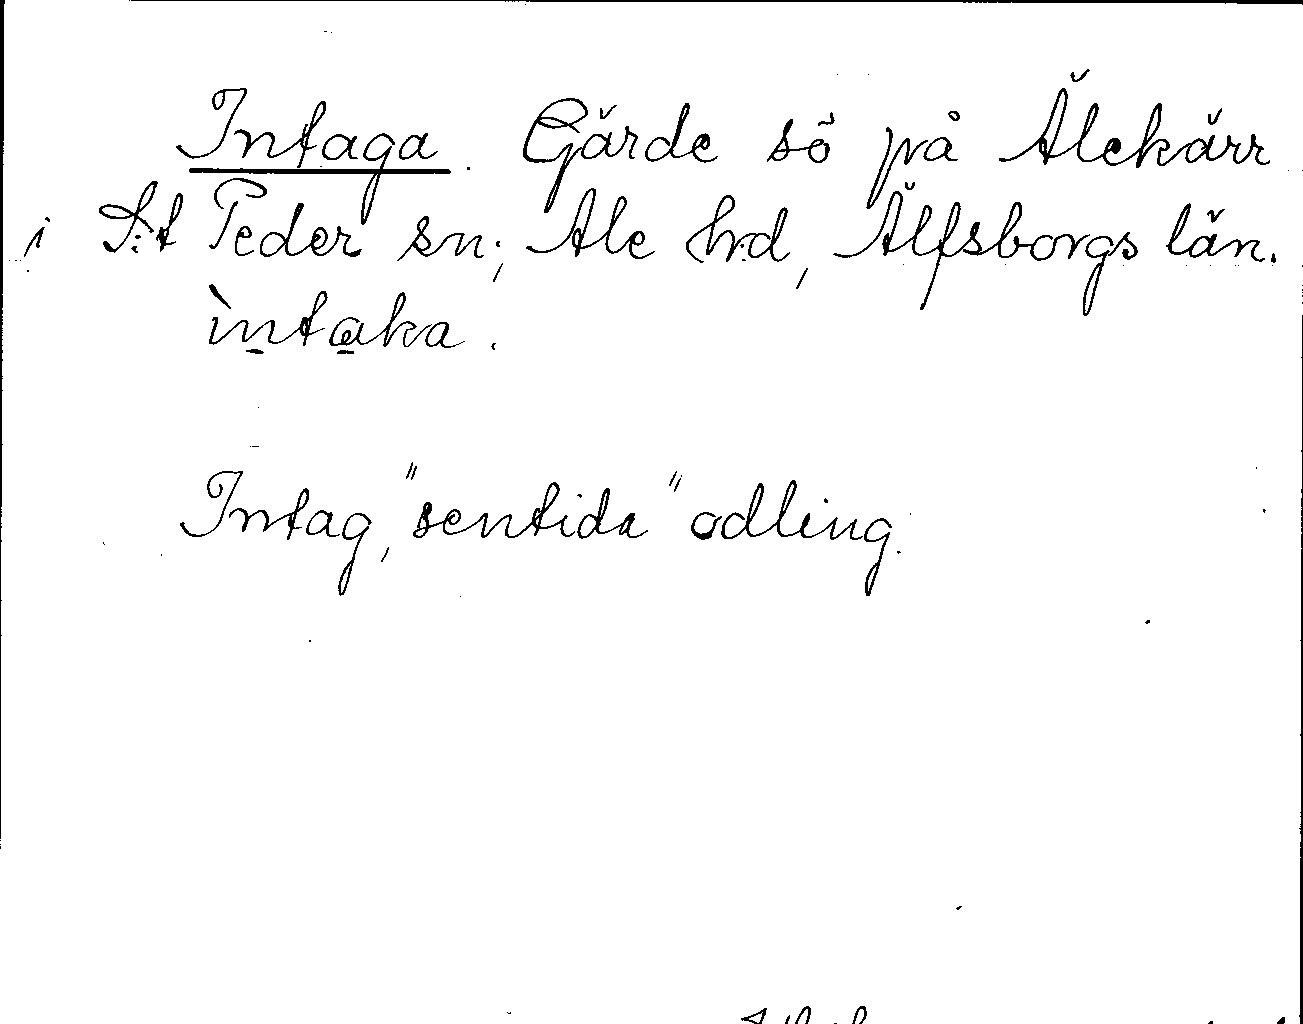 Intaga. Gärde sö på Älekärr
i S:t Peder sn; Ale hd, Älfsborgs län.
ìntaka.
Intag, "sentida" odling.